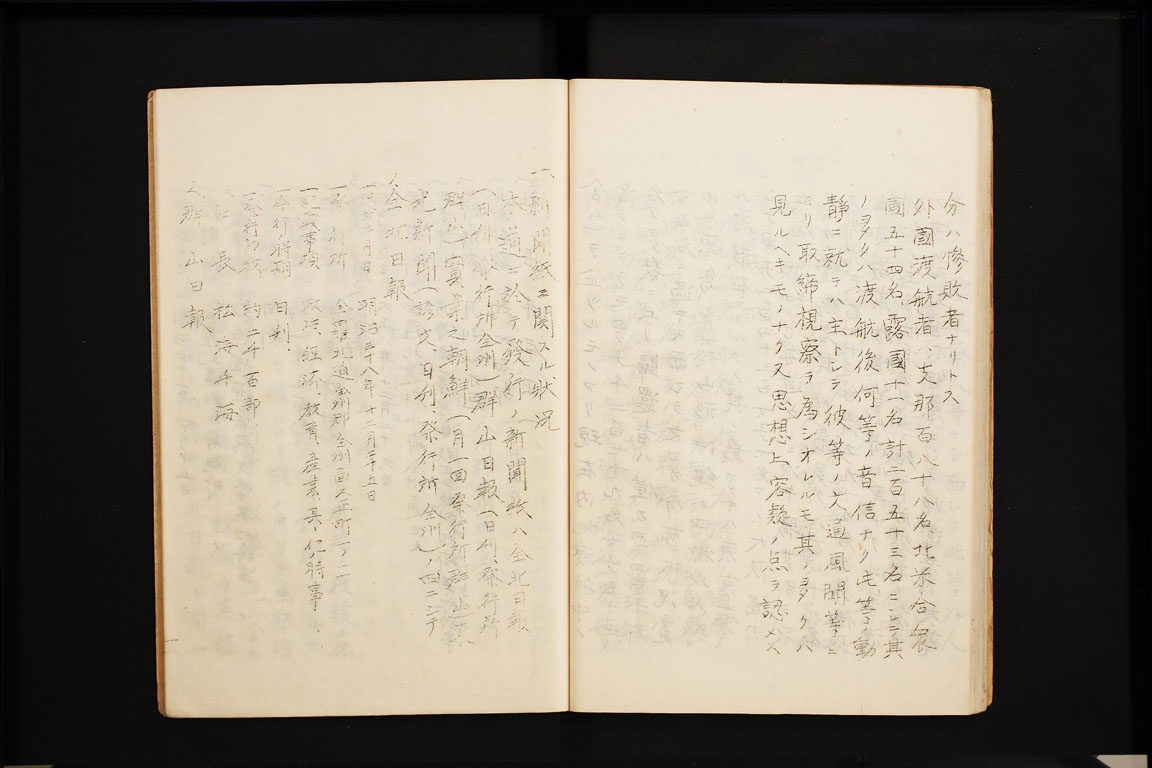 分ハ慘敗者ナリトス
外國渡航者ハ支那百八十八名北米合衆
國五十四名露國十一名計二百五十三名ニシテ其
ノ多クハ渡航後何等ノ音信ナク此等ノ動
靜ニ就テハ主トシテ彼等ノ文通風聞等ニ
ヨリ取締視察ヲ為シオレルモ其ノ多クハ
見ルヘキモノナク又思想上容疑ノ点ヲ認メス
一、新聞紙ニ関スル狀況
本道ニ於テ發行ノ新聞紙ハ全北日報
(日刊、發行所全州)群山日報(日刊、發行所
群山)實業之朝鮮(月一回發行所群山)
光新聞(諺文日刊發行所全州)ノ四ニシテ
全北日報
明治三十八年十二月二十五日
全羅北道全州郡全州面大正町一ノ二
一記載事項 政治、經濟、教育、産業其ノ他ノ時事
一發行時期 日刊、
一發行部数 約二千百部
社長 松海千海
群山日報